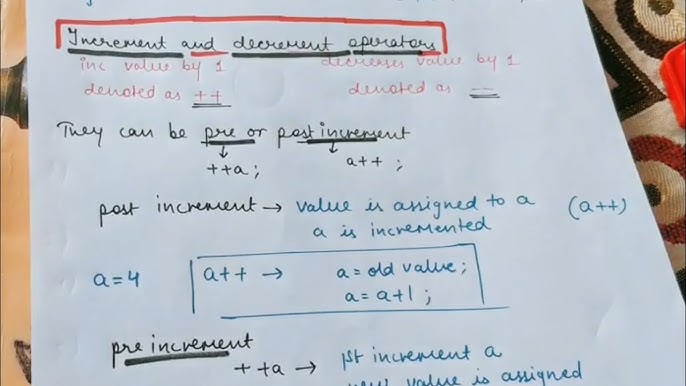 Increment and decrement operators
inc value by 1 decreases value by 1
denoted as ++ denoted as --
They can be pre or post increment
++a ; a++ ;
post increment → value is assigned to a (a++)
a is incremented
a=4 a++ → a = old value ;
a = a+1 ;
pre increment
++a → 1st increment a
new value is assigned